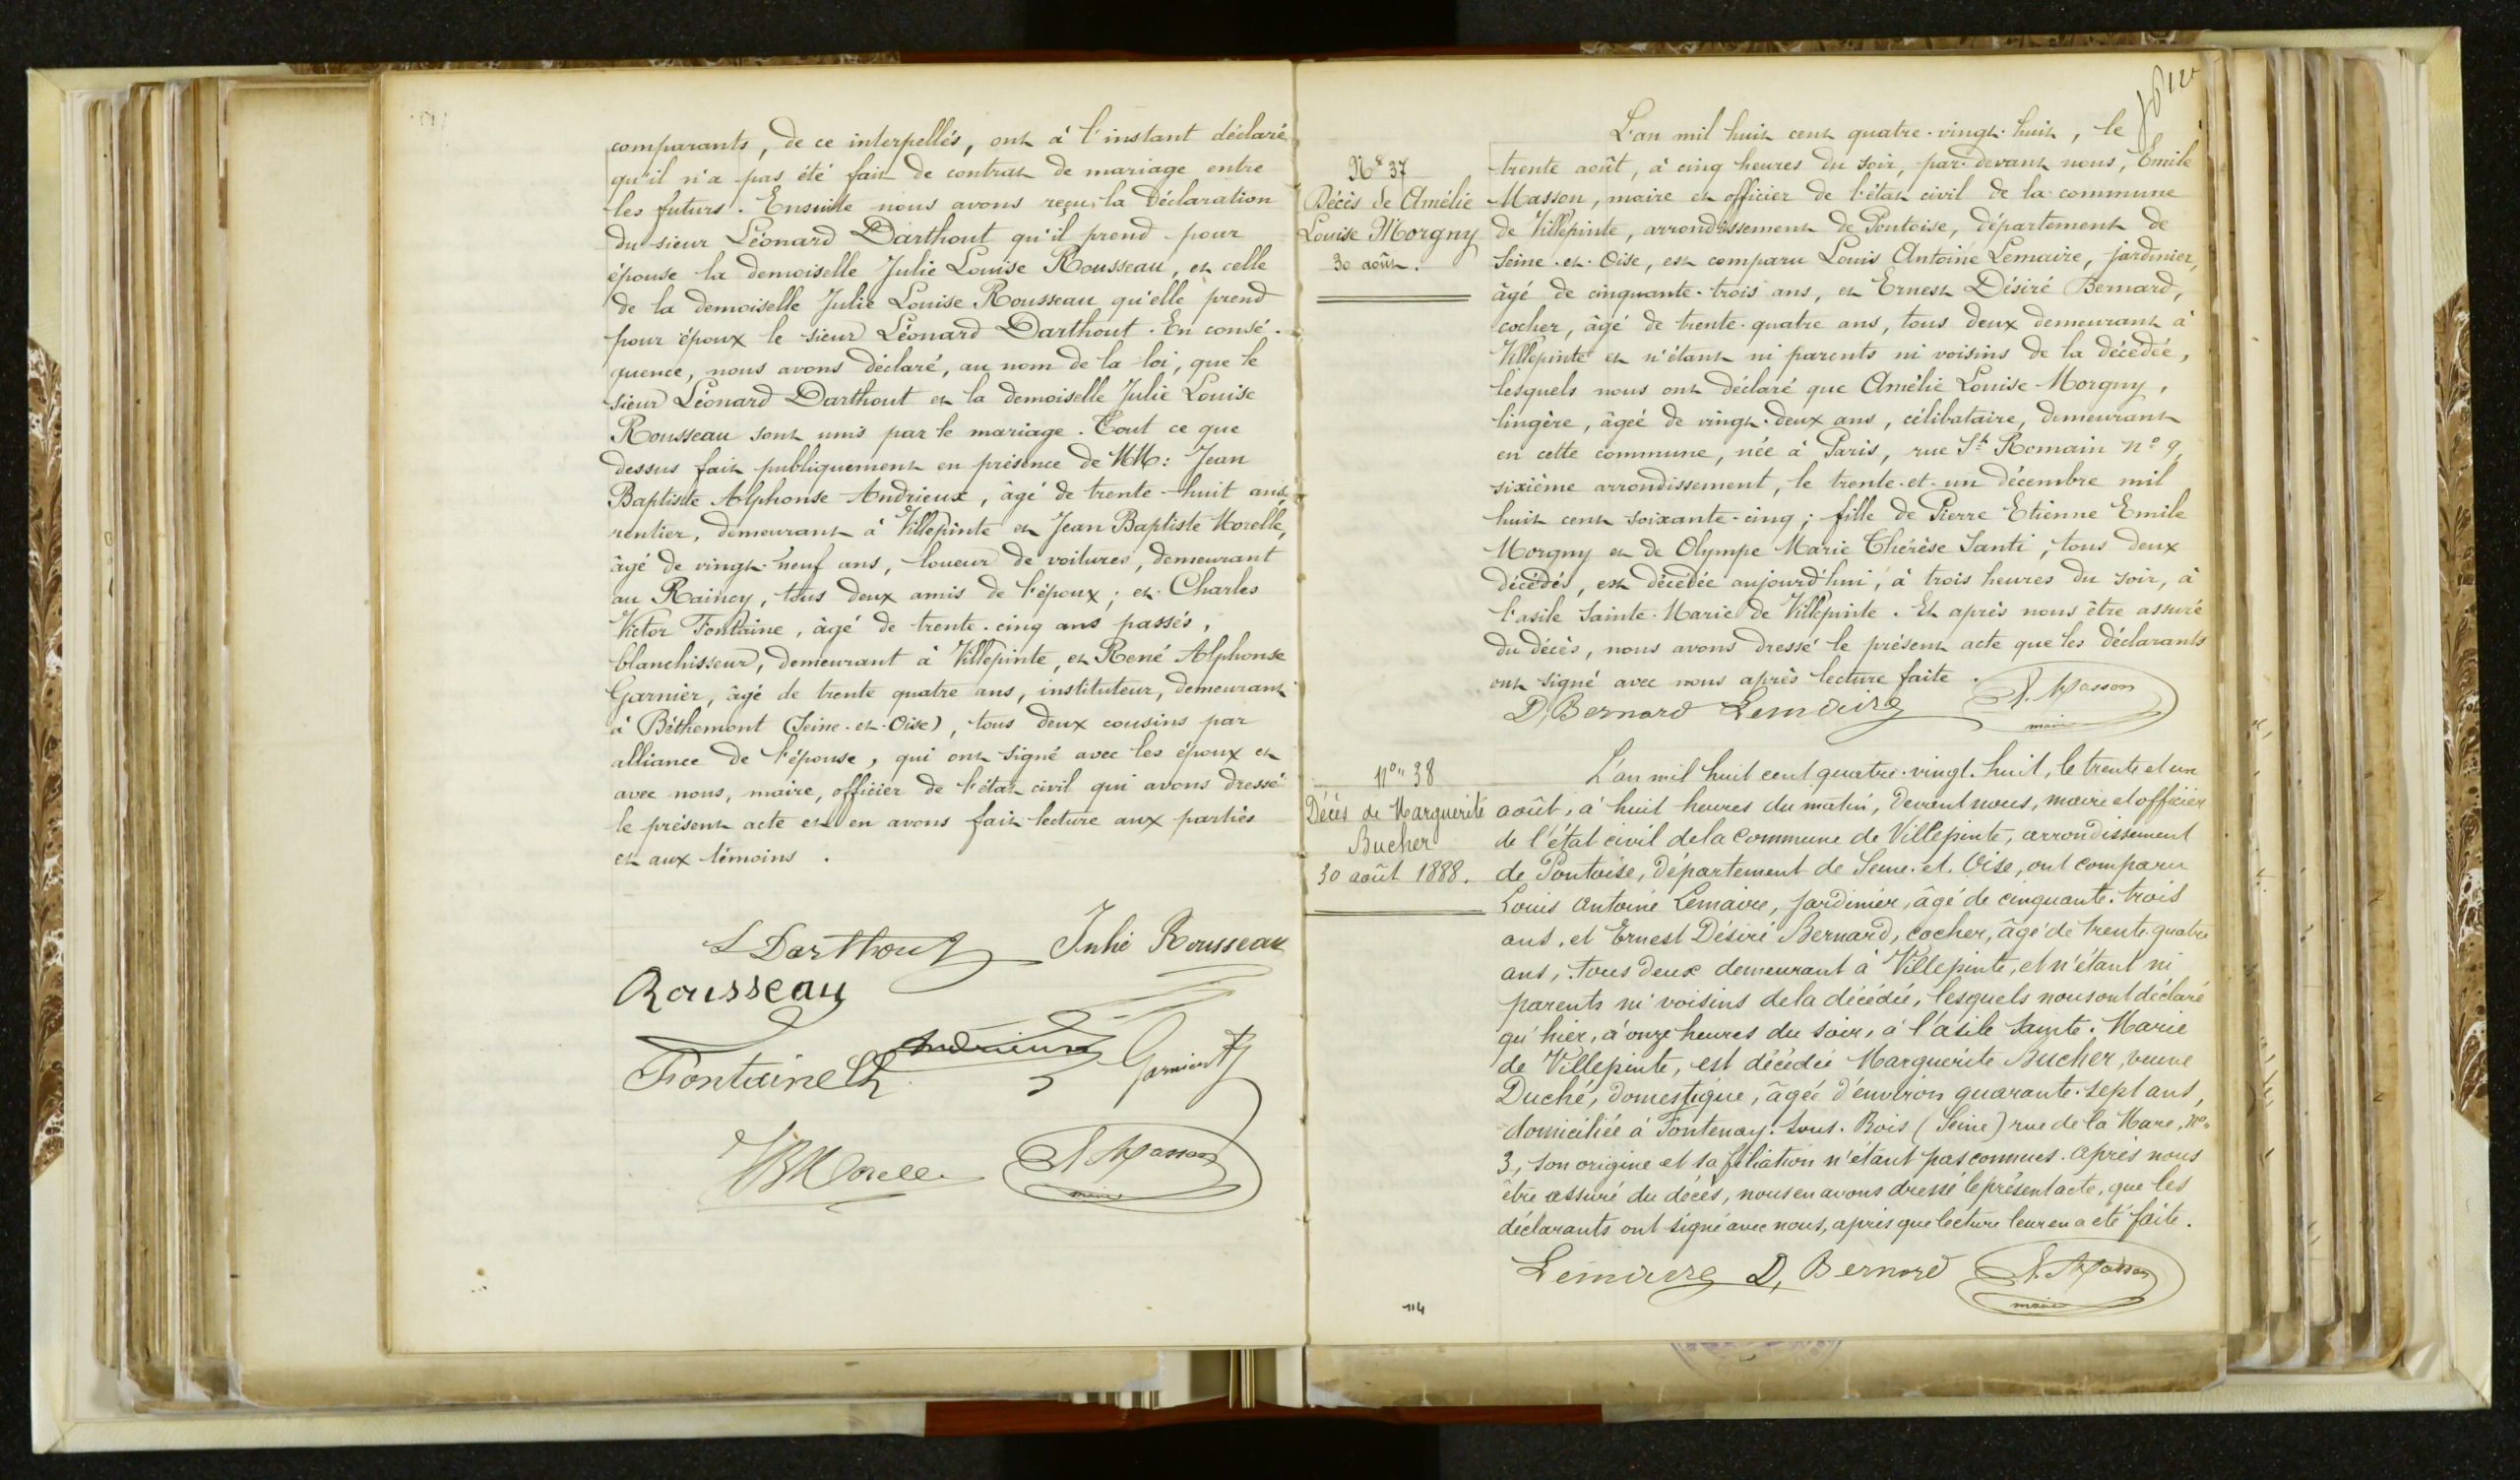 comparants, de ce interpellés, ont à l'instant déclaré
qu'il n'a pas été fait de contrat de mariage entre
les futurs. Ensuite nous avons reçu la déclaration
du sieur Léonard Darthout qu'il prend pour
épouse la demoiselle Julie Louise Rousseau, et celle
de la demoiselle Julie Louise Rousseau qu'elle prend
pour époux le sieur Léonard Darthout. En consé-
quence, nous avons déclaré, au nom de la loi, que le
sieur Léonard Darthout et la demoiselle Julie Louise
Rousseau sont unis par le mariage. Tout ce que
dessus fait publiquement en présence de MM: Jean
Baptiste Alphonse Andrieux, âgé de trente-huit ans,
rentier, demeurant à Villepinte et Jean Baptiste Morelle,
âgé de vingt-neuf ans, loueur de voitures, demeurant
au Raincy, tous deux amis de l'époux; et Charles
Victor Fontaine, âgé de trente-cinq ans passés,
blanchisseur, demeurant à Villepinte, et René Alphonse
Garnier, âgé de trente quatre ans, instituteur, demeurant
à Béthemont (Seine-et-Oise), tous deux cousins par
alliance de l'épouse, qui ont signé avec les époux et
avec nous, maire, officier de l'état civil qui avons dressé
le présent acte et en avons fait lecture aux parties
et aux témoins.
L Darthout Julie Rousseau
Rousseau
Andrieux
Fontaine Ch Garnier
JB Morelle E. Masson
maire
114
N° 37
Décès de Amélie
Louise Morgny
30 août.
L'an mil huit cent quatre-vingt-huit, le
trente août, à cinq heures du soir, par-devant nous, Emile
Masson, maire et officier de l'état civil de la commune
de Villepinte, arrondissement de Pontoise, département de
Seine-et-Oise, est comparu Louis Antoine Lemaire, jardinier,
âgé de cinquante-trois ans, et Ernest Désiré Bernard,
cocher, âgé de trente-quatre ans, tous deux demeurant à
Villepinte et n'étant ni parents ni voisins de la décédée,
lesquels nous ont déclaré que Amélie Louise Morgny,
lingère, âgée de vingt-deux ans, célibataire, demeurant
en cette commune, née à Paris, rue St Romain n° 9,
sixième arrondissement, le trente-et-un décembre mil
huit cent soixante-cinq; fille de Pierre Etienne Emile
Morgny et de Olympe Marie Thérèse Santi, tous deux
décédés, est décédée aujourd'hui, à trois heures du soir, à
l'asile Sainte-Marie de Villepinte. Et après nous être assuré
du décès, nous avons dressé le présent acte que les déclarants
ont signé avec nous après lecture faite.
D, Bernard Lemaire E. Masson
maire
N° 38
Décès de Marguerite
Bucher
30 août 1888.
L'an mil huit cent quatre-vingt-huit, le trente et un
août, à huit heures du matin, devant nous, maire et officier
de l'état civil de la commune de Villepinte, arrondissement
de Pontoise, département de Seine-et-Oise, ont comparu
Louis Antoine Lemaire, jardinier, âgé de cinquante-trois
ans, et Ernest Désiré Bernard, cocher, âgé de trente-quatre
ans, tous deux demeurant à Villepinte, et n'étant ni
parents ni voisins de la décédée, lesquels nous ont déclaré
qu'hier, à onze heures du soir, à l'asile Sainte-Marie
de Villepinte, est décédée Marguerite Bucher, veuve
Duché, domestique, âgée d'environ quarante-sept ans,
domiciliée à Fontenay-sous-Bois (Seine) rue de la Mare, N°
3, son origine et sa filiation n'étant pas connues. Après nous
être assuré du décès, nous en avons dressé le présent acte, que les
déclarants ont signé avec nous, après que lecture leur en a été faite.
Lemaire D, Bernard E. Masson
maire